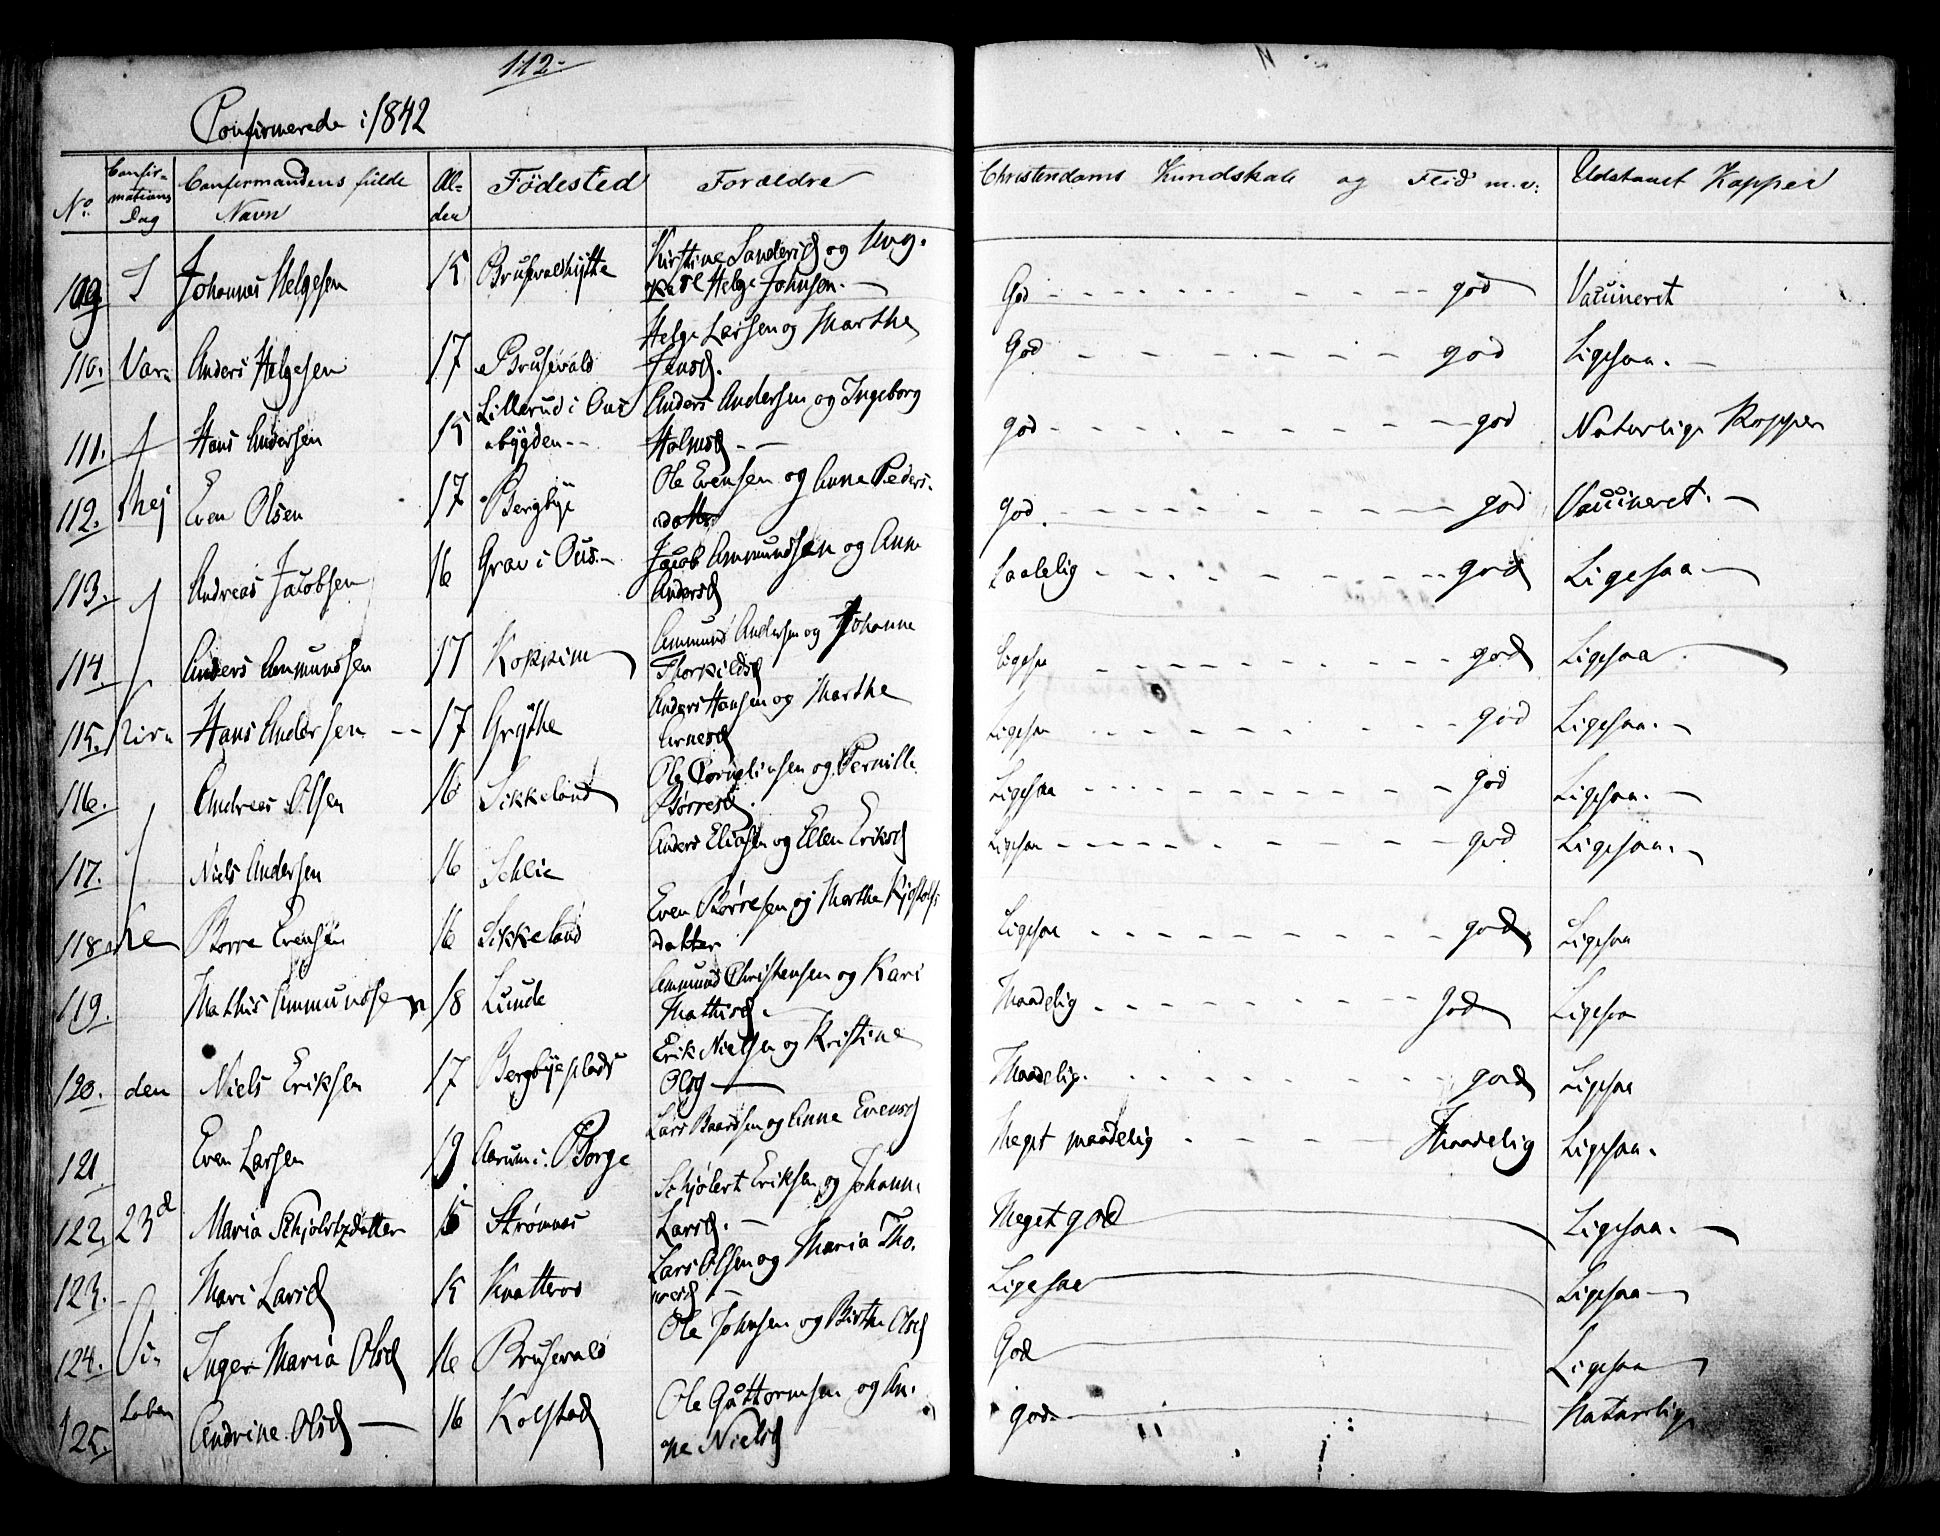 112.
Confirmerede i 1842
No. Confirmations Dag Confirmandens fulde Navn Alder Fødested Forældre Christendoms Kundskab og Flid m. v: Udstanet Kopper
109 I Johannes Helgesen 15 Brusevaldhytte Kirstine Sandersd og Ung-
karl Helge Johnsen. God god Vacuineret
110. Var- Anders Helgesen 17 Brusevald Helge Larsen og Marthe
Jensd. God god Ligesaa.
111. Hans Andersen 15 Lillerud i Ous Anders Andersen og Ingeborg
bygden Holmsd god god Naturlige Kopper
112. Even Olsen 17 Bergbye Ole Evensen og Anne Peders-
datter god. god Vaccineret.
113. Andreas Jacobsen 16 Grav i Ous. Jacob Ammundsen og Anne
Andersd Taalelig god Ligesaa
114. Anders Ammundsen 17 Kokkim Ammund Andersen og Johanne
Thorkildsd Ligesaa god Ligesaa.
115. Hans Andersen 17 Grythe Anders Hansen og Marthe
Arnesd Ligesaa god Ligesaa.
116. Andreas Olsen 16 Sikkeland Ole og Pernille
Børresd. Ligesaa god Ligesaa.
117. Niels Andersen 16 Schlie Anders Eliasen og Ellen Eriksd Ligesaa god Ligesaa.
118 Børre Evensen 16 Sikkeland Even Børresen og Marthe
datter Ligesaa god. Ligesaa
119. Mathis Ammundsen 18 Lunde Ammund Christensen og Kari
Mathisd. Maadelig god Ligesaa
120. den Niels Eriksen 17 Bergbyeplads Erik Nielsen og Kristine
Olsd Maadelig. god Ligesaa
121. Even Larsen 19 Aarum i Borge Lars Baardsen og Anne Evensd Meget maadelig Maadelig Ligesaa.
122. 23d Maria Schjølertzdatter 15 Strømnes Schjølert Eriksen og Johanne
Larsd. Meget god Ligesaa.
123. Mari Larsd 15 Knatterød Lars Olsen og Maria Tho-
resd Ligesaa Ligesaa
124. Inger Maria Olsd 16 Brusevald Ole Johnsen og Birthe Olsd God Ligesaa
125. Andrine Olsd 16 Kolstad Ole Guttormsen og An-
ne Nielsd god. Naturlige